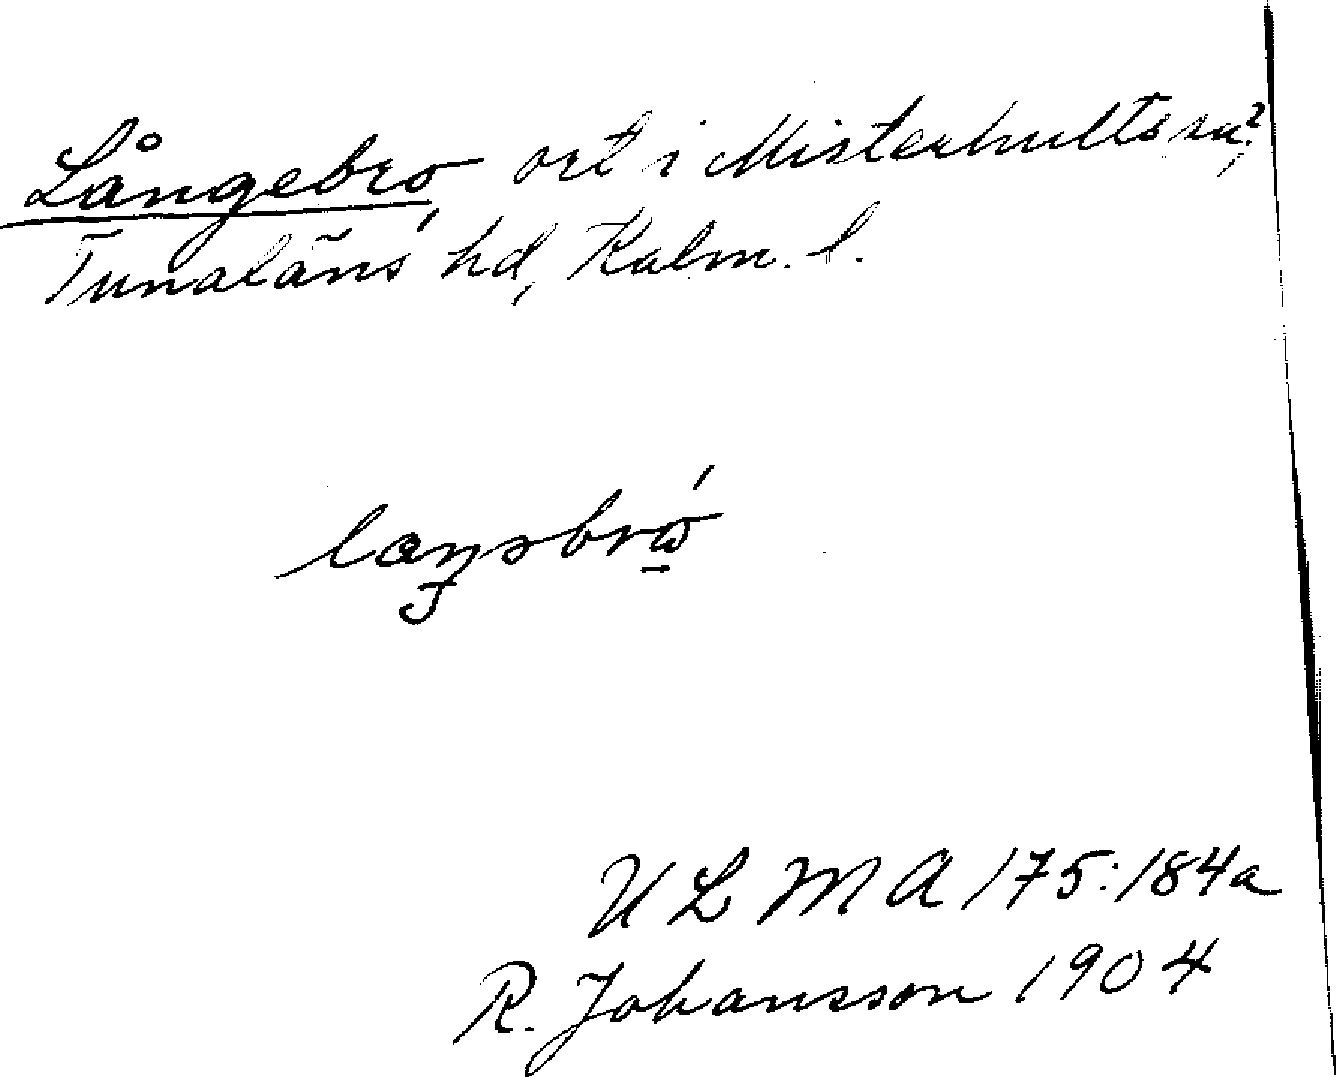 Långebro, ort i Misterhults sn?,
Tunaläns hd, Kalm. l.
ULMA 175:184a
R. Johansson 1904